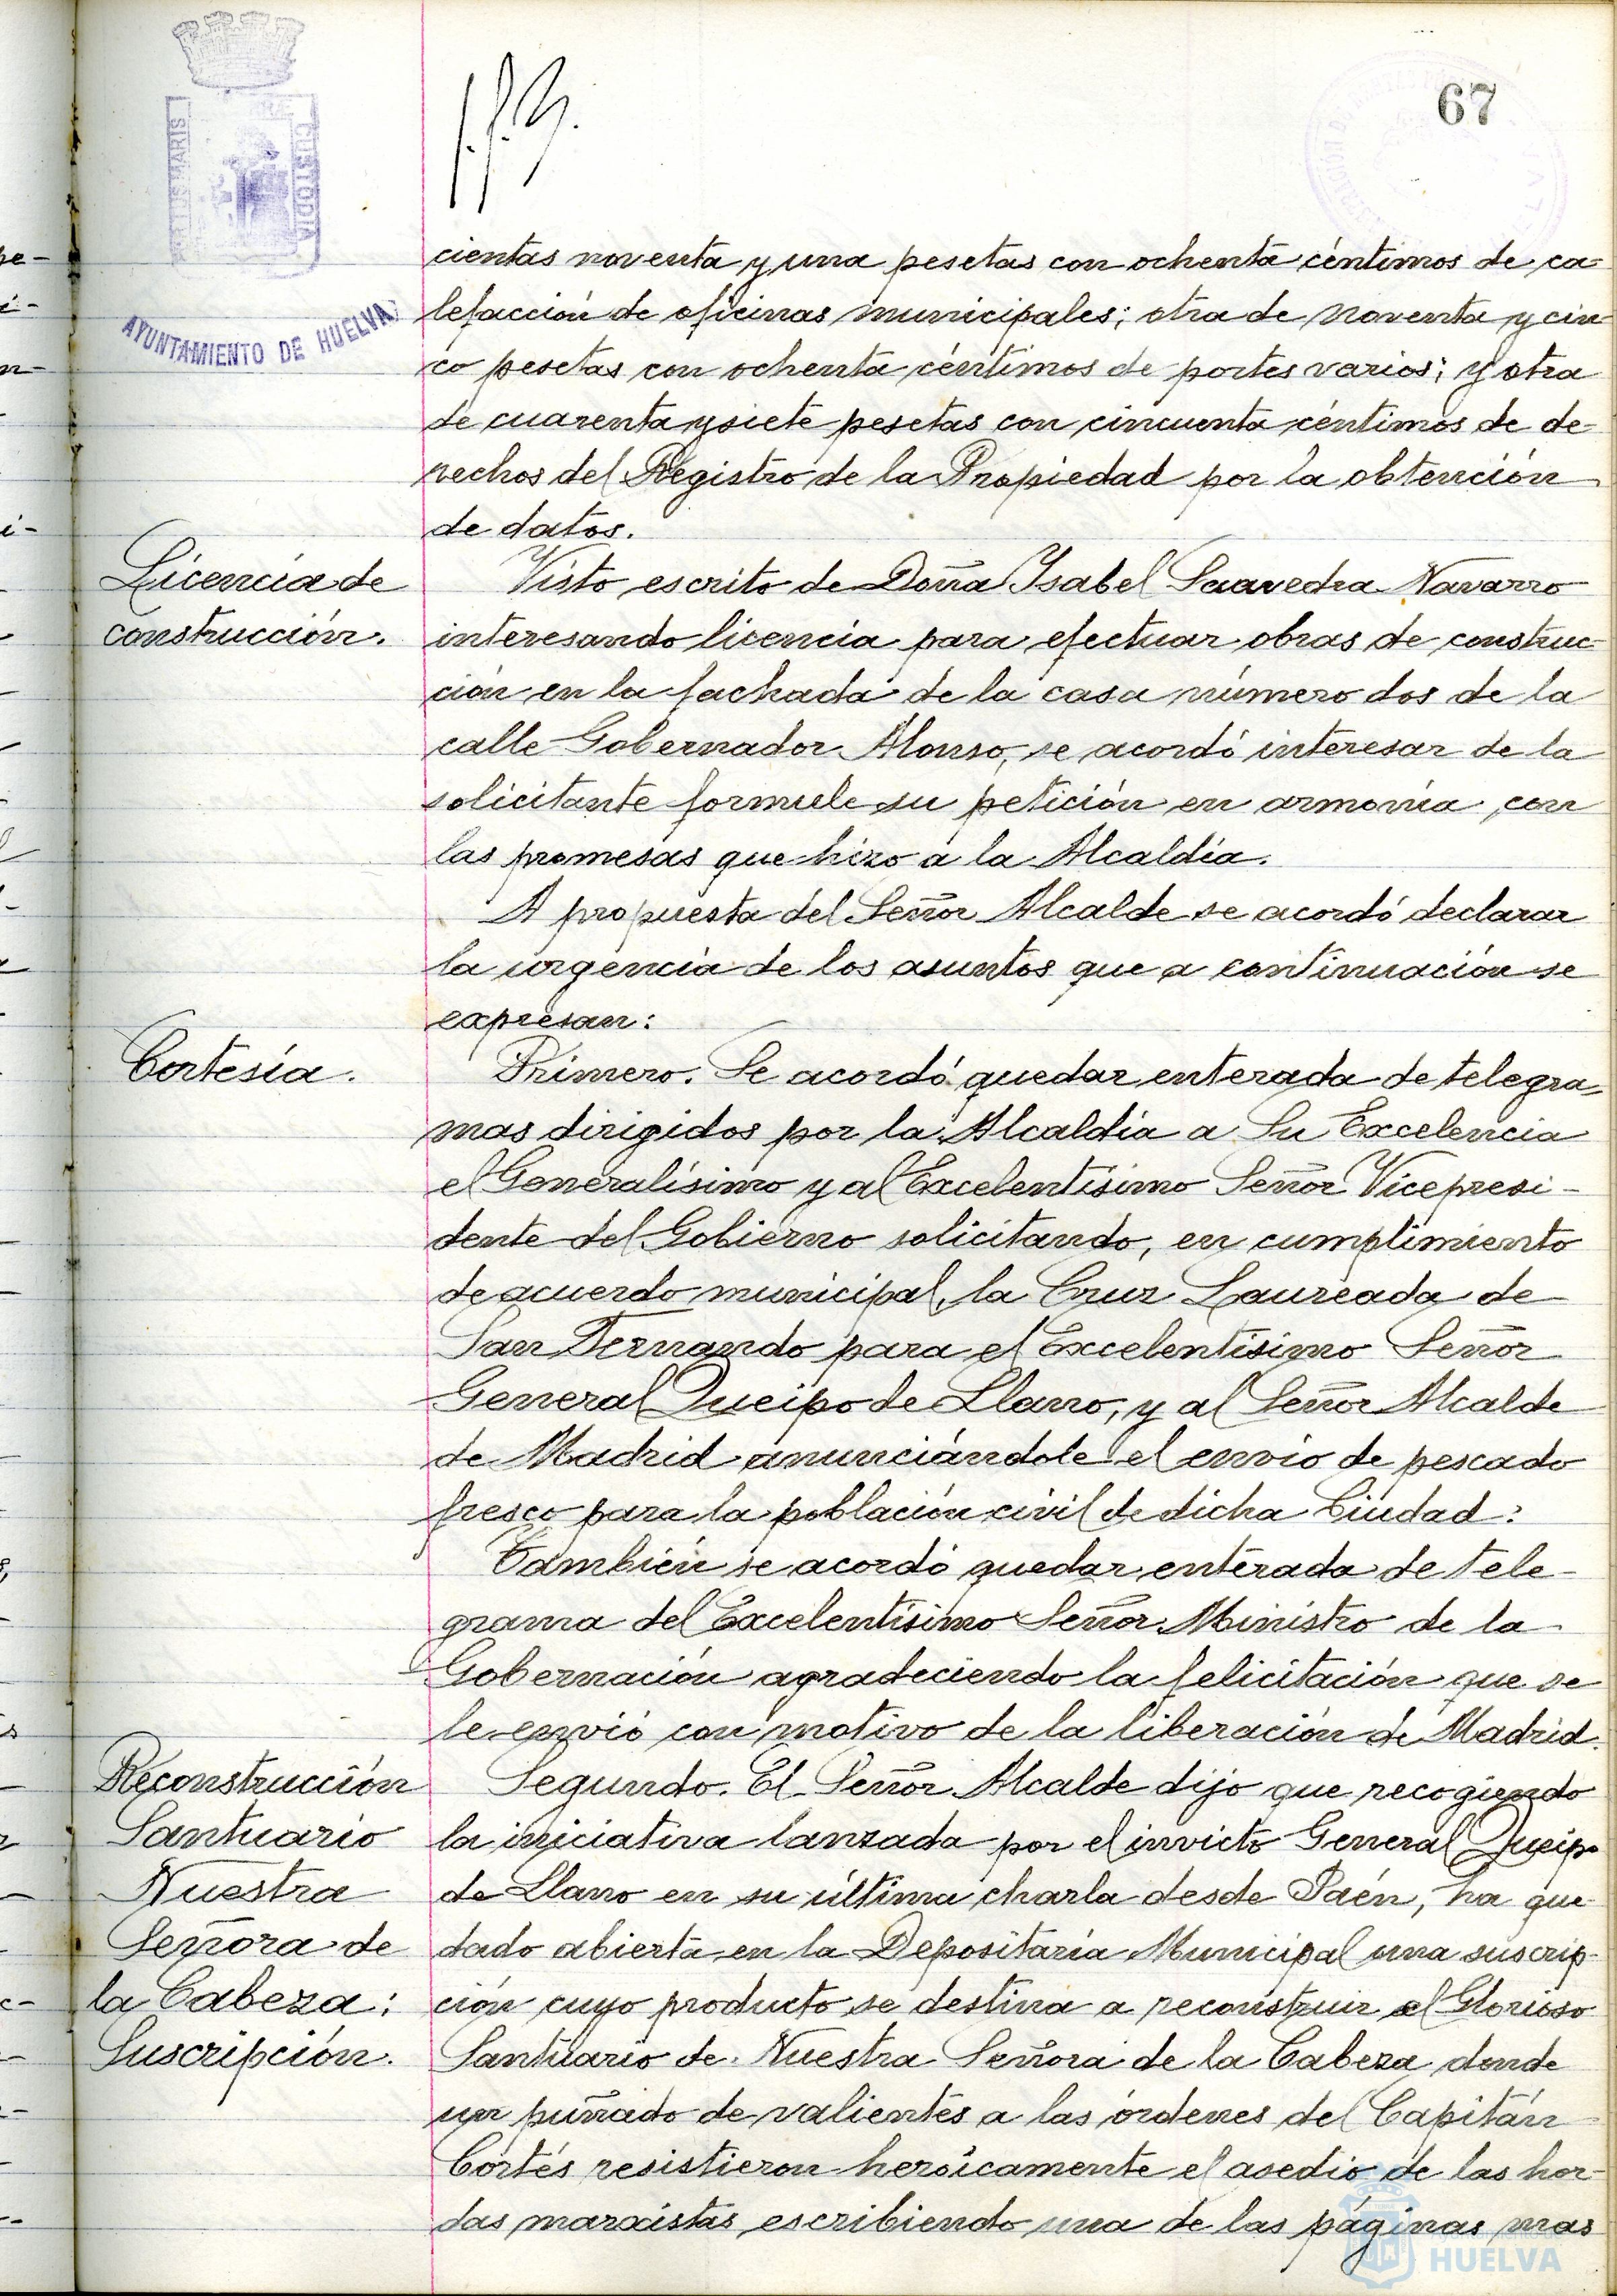 67
PORTUS MARIS
CUSTODIA
AYUNTAMIENTO DE HUELVA
cientas noventa y una pesetas con ochenta céntimos de ca-
lefacción de oficinas municipales; otra de noventa y cin-
co pesetas con ochenta céntimos de portes varios; y otra
de cuarenta y siete pesetas con cincuenta céntimos de de-
rechos del Registro de la Propiedad por la obtención
de datos.
Licencia de
construcción.
Visto escrito de Doña Ysabel Saavedra Navarro
interesando licencia para efectuar obras de construc-
ción en la fachada de la casa número dos de la
calle Gobernador Alonso, se acordó interesar de la
solicitante formule su petición en armonía con
las promesas que hizo a la Alcaldía.
A propuesta del Señor Alcalde se acordó declarar
la urgencia de los asuntos que a continuación se
expresan:
Cortesía.
Primero. Se acordó quedar enterada de telegra-
mas dirigidos por la Alcaldía a Su Excelencia
el Generalísimo y al Excelentísimo Señor Vicepresi-
dente del Gobierno solicitando, en cumplimiento
de acuerdo municipal, la Cruz Laureada de
San Fernando para el Excelentísimo Señor
General Queipo de Llano, y al Señor Alcalde
de Madrid anunciándole el envío de pescado
fresco para la población civil de dicha Ciudad:
También se acordó quedar enterada de tele-
grama del Excelentísimo Señor Ministro de la
Gobernación agradeciendo la felicitación que se
le envió con motivo de la liberación de Madrid.
Reconstrucción
Santuario
Nuestra
Señora de
la Cabeza:
Suscripción.
Segundo. El Señor Alcalde dijo que recogiendo
la iniciativa lanzada por el invicto General Queipo
de Llano en su última charla desde Jaén, ha que-
dado abierta en la Depositaría Municipal una suscrip-
ción cuyo producto se destina a reconstruir el Glorioso
Santuario de Nuestra Señora de la Cabeza donde
un puñado de valientes a las órdenes del Capitán
Cortés resistieron heroicamente el asedio de las hor-
das marxistas, escribiendo una de las páginas mas
HUELVA